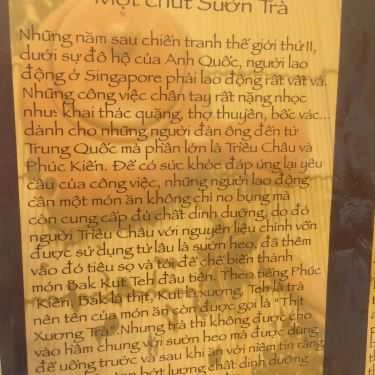 Một chút Sườn Trà
Những năm sau chiến tranh thế giới thứ II,
dưới sự đô hộ của Anh Quốc, người lao
động ở Singapore phải lao động rất vất vả.
Những công việc chân tay rất nặng nhọc
như: khai thác quặng, thợ thuyền, bốc vác...
dành cho những người đàn ông đến từ
Trung Quốc mà phần lớn là Triều Châu và
Phúc Kiến. Để có sức khỏe đáp ứng lại yêu
cầu của công việc, những người lao động
cần một món ăn không chỉ no bụng mà
còn cung cấp đủ chất dinh dưỡng, do đó
người Triều Châu với nguyên liệu chính vốn
được sử dụng từ lâu là sườn heo, đã thêm
vào đó tiêu sọ và tỏi để chế biến thành
món Bak Kut Teh đầu tiên. Theo tiếng Phúc
Kiến, Bak là thịt, Kut là xương, Teh là trà
nên tên của món ăn còn được gọi là "Thịt
Xương Trà". Nhưng trà thì không được cho
vào hầm chung với sườn heo mà được dùng
để uống trước và sau khi ăn với niềm tin rằng
bớt lượng chất dinh dưỡng